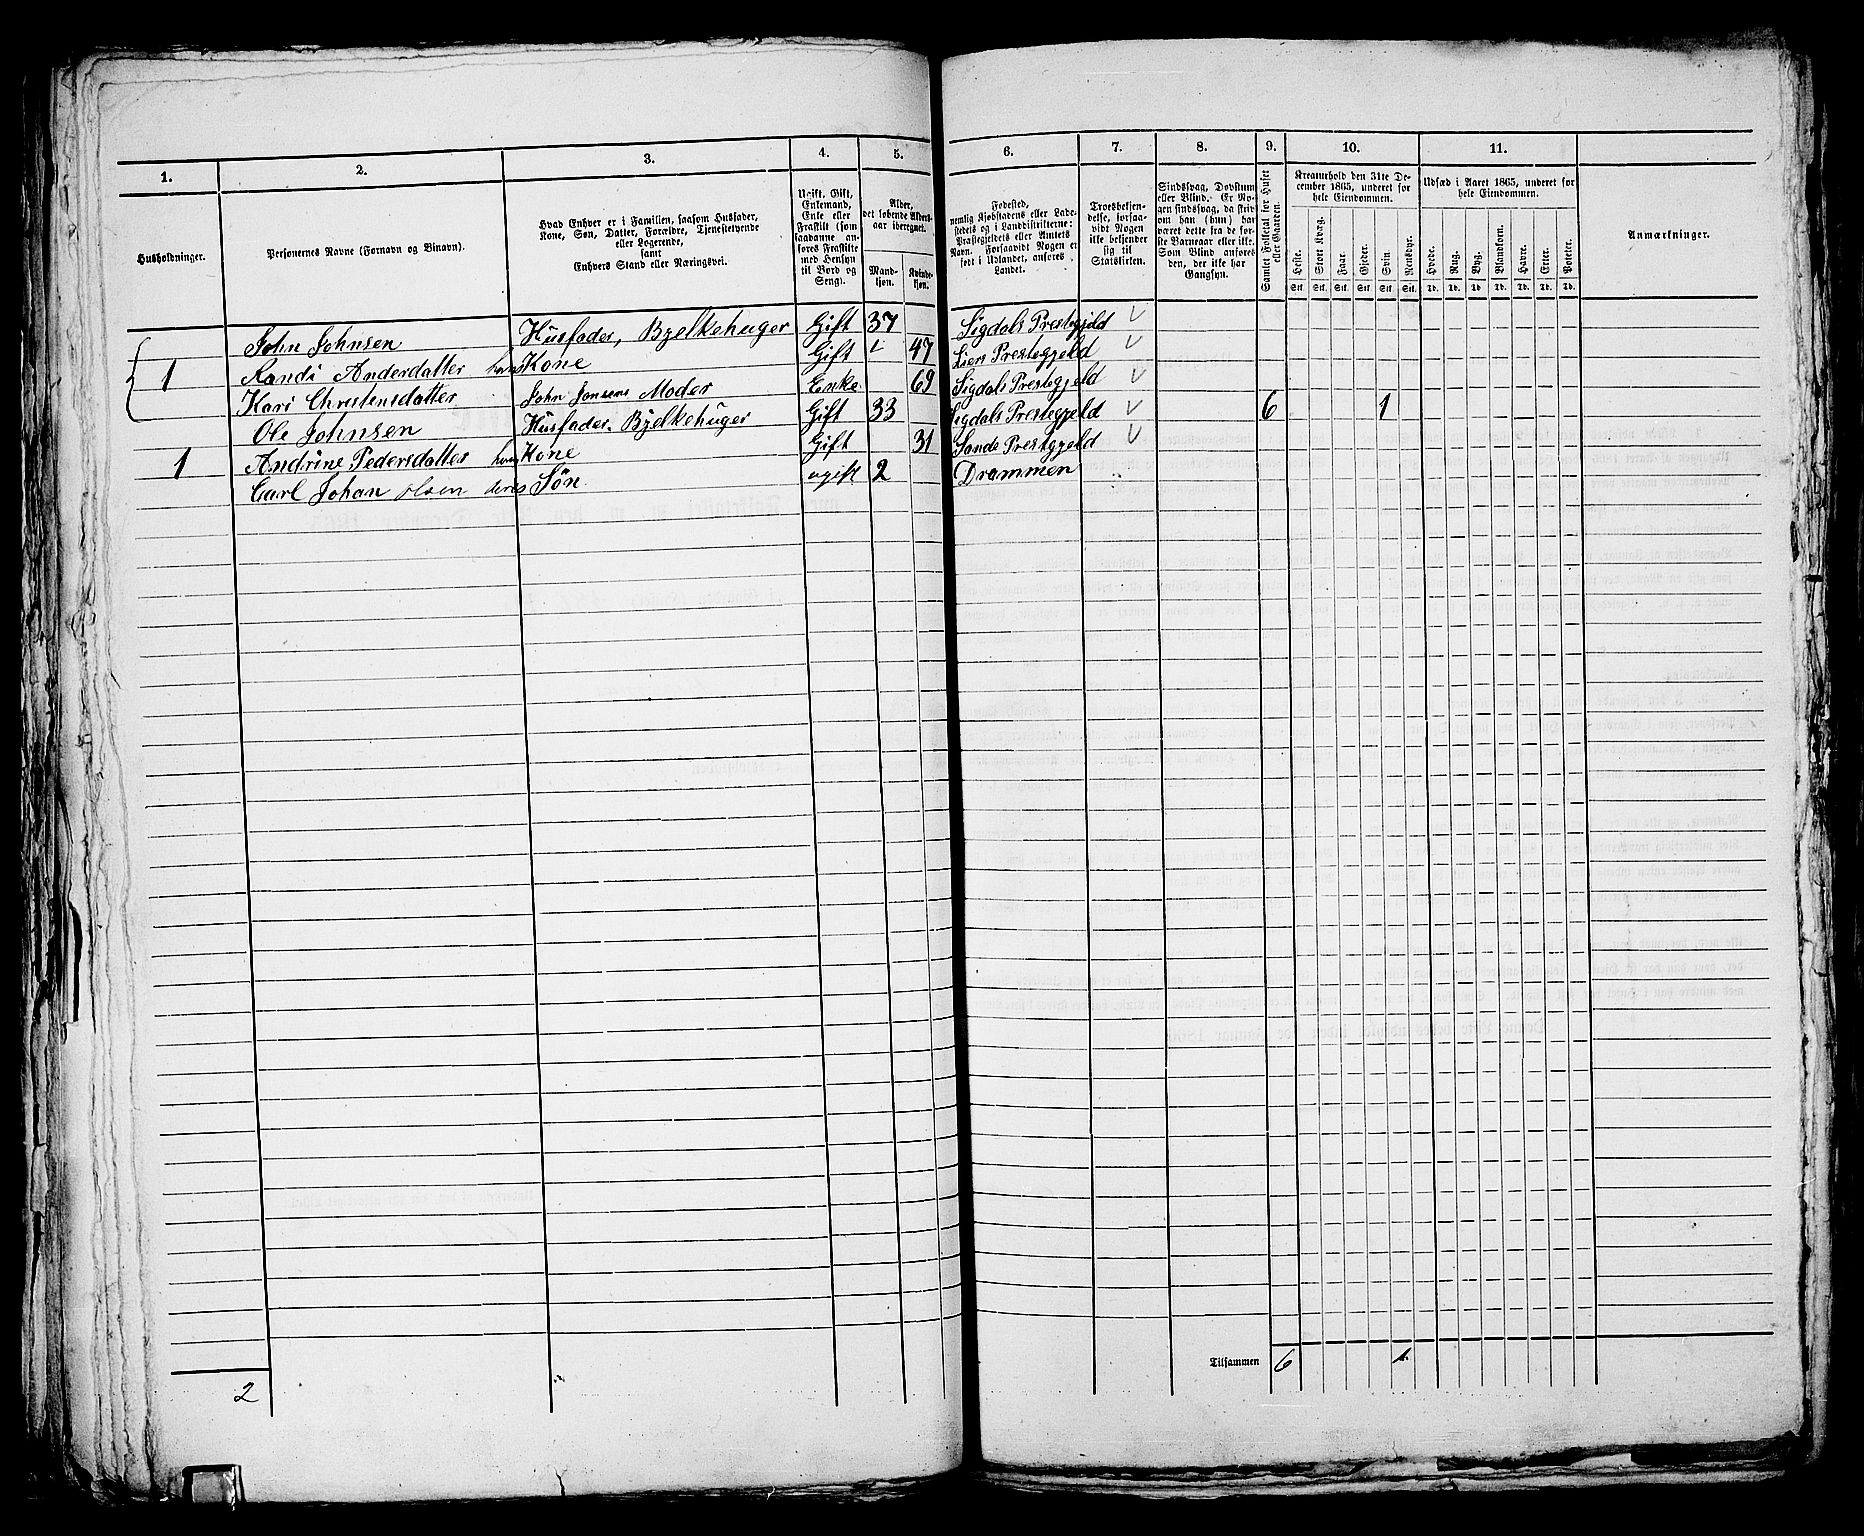 1. 2. 3. 4. 5. 6. 7. 8. 9. 10. 11.
Husholdninger.
Personernes Navne (Fornavn og Binavn).
Hvad Enhver er i Familien, saasom Husfader,
Kone, Søn, Datter, Forældre, Tjenestetyende
eller Logerende,
samt
Enhvers Stand eller Næringsvei.
Ugift, Gift,
Enkemand,
Enke eller
Fraskilt (som
saadanne an-
føres Fraskilte
med Hensyn
til Bord og
Seng).
Alder,
det løbende Alders-
aar iberegnet.
Mand-
kjøn.
Kvinde-
kjøn.
Fødested,
nemlig Kjøbstadens eller Lade-
stedets og i Landdistrikterne:
Præstegjeldets eller Amtets
Navn. Forsaavidt Nogen er
født i Udlandet, anføres
Landet.
Troesbekjen-
delse, forsaa-
vidt Nogen
ikke bekjender
sig til
Statskirken.
Sindssvag, Døvstum
eller Blind. Er No-
gen sindssvag, da skriv
om han (hun) har
været dette fra de før-
ste Barneaar eller ikke.
Som Blind anføres
den, der ikke har
Gangsyn.
Samlet Folketal for Huset
eller Gaarden.
Kreaturhold den 31te De-
cember 1865, underet for
hele Eiendommen.
Heste. Stort Kvæg. Faar. Gjeder. Svin. Rensdyr.
Stk. Stk. Stk. Stk. Stk. Stk.
Udsæd i Aaret 1865, underet for
hele Eiendommen.
Hvede. Rug. Byg. Blandkorn. Havre. Erter. Poteter.
Td. Td. Td. Td. Td. Td. Td.
Anmærkninger.
John Johnsen Husfader, Bjelkehuger Gift 37 Sigdals Prestegjeld
1 Randi Andersdatter hans Kone Gift 47 Liers Prestegjeld
Kari Christensdatter John Jonsens Moder Enke 69 Sigdals Prestegjeld
Ole Johnsen Husfader. Bjelkehuger Gift 33 Sigdals Prestegjeld 6 1
1 Andrine Pedersdatter hans Kone Gift 31 Sande Prestgjeld
Carl Johan Olsen deres Søn ugift 2 Drammen
2 Tilsammen 6 1